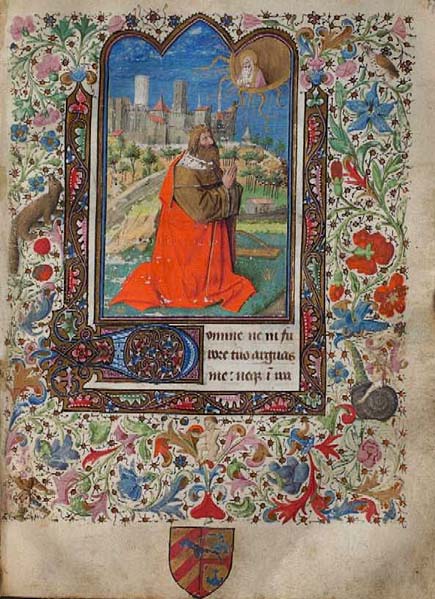 Domine ne in fu
rore tuo arguas
me: neqꝫ ī ira